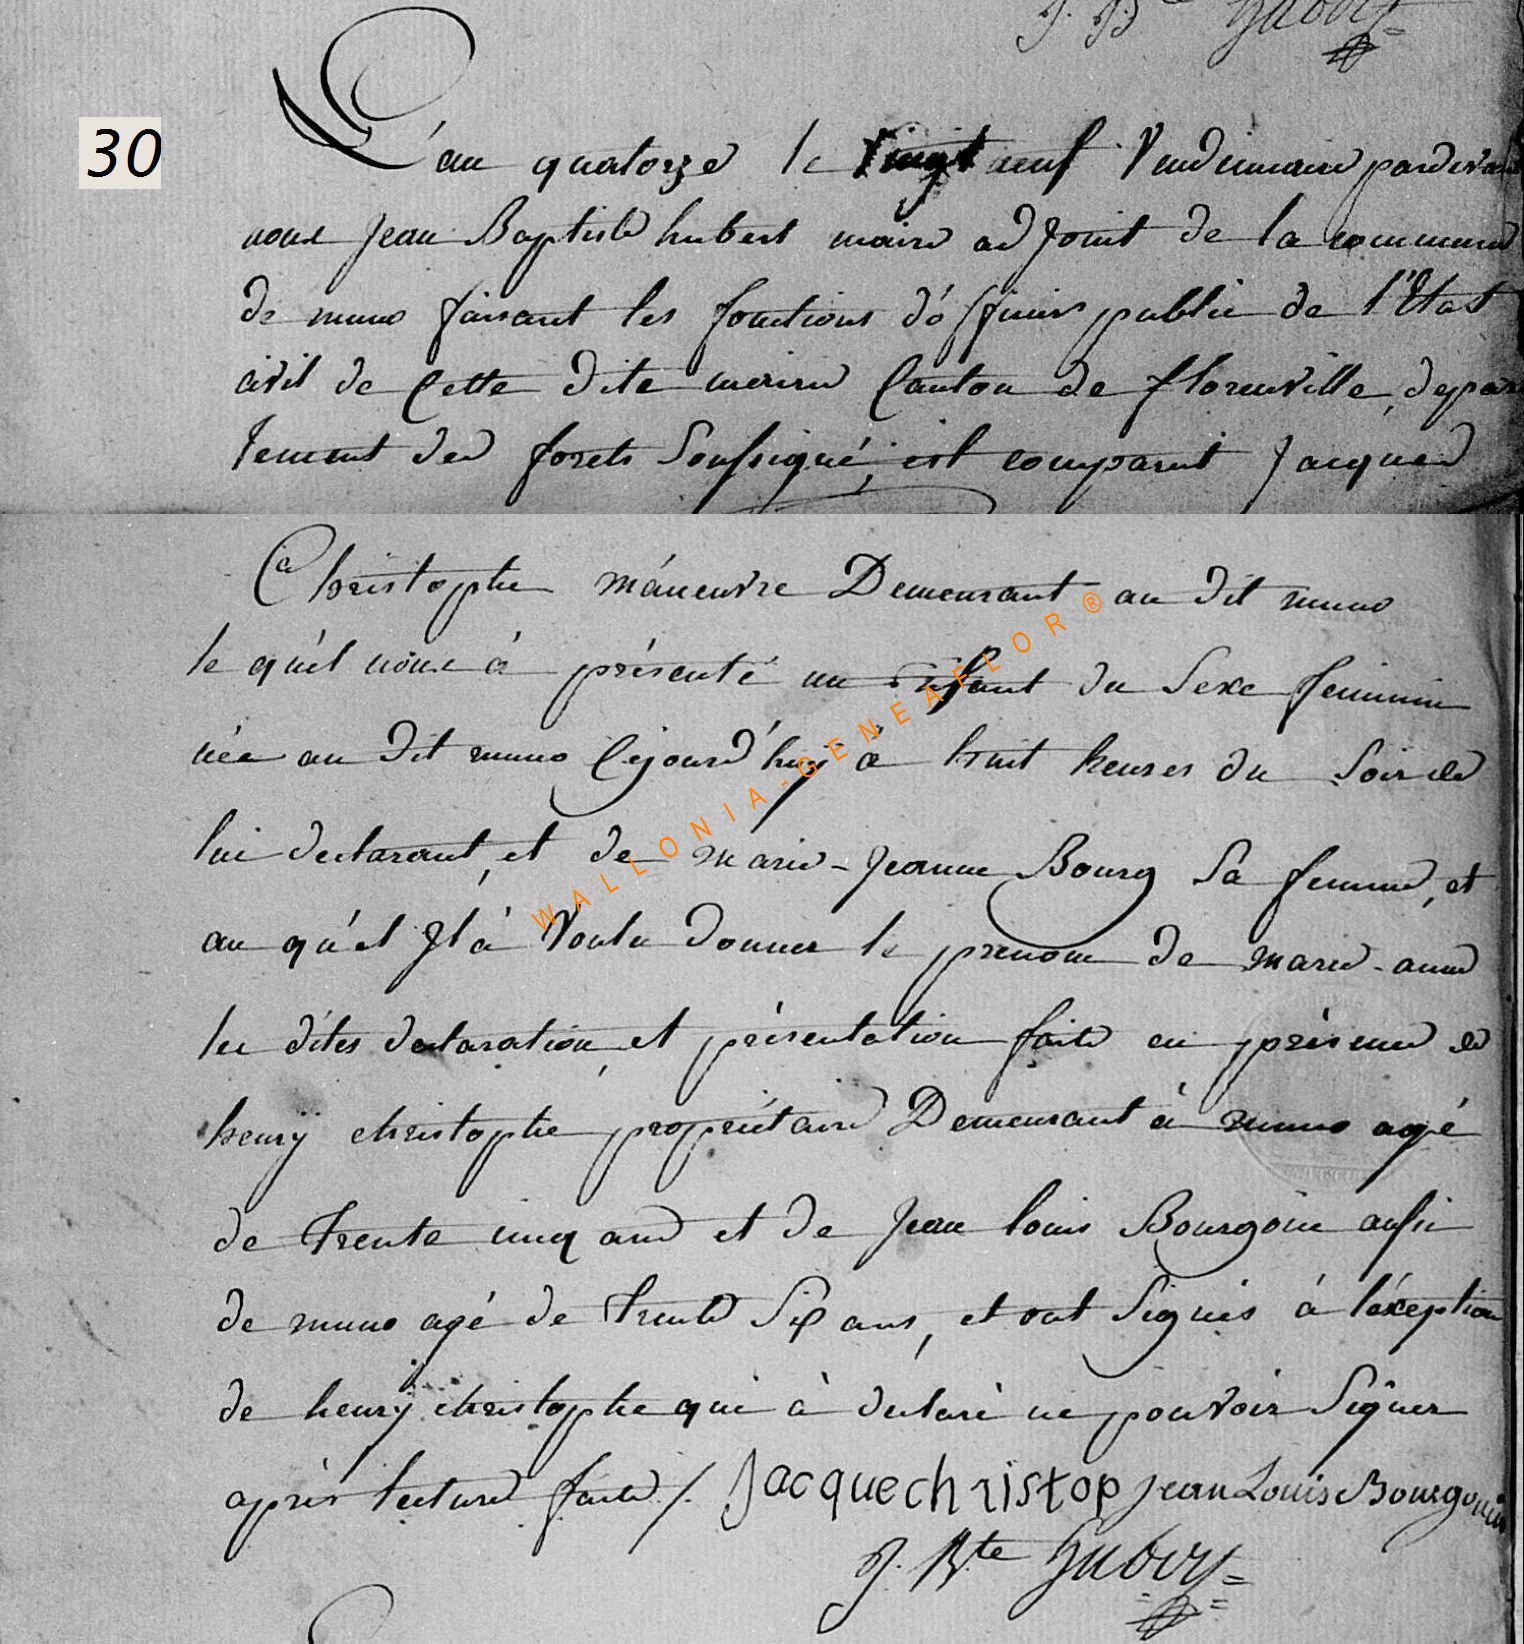 J. Bte Hubert
30
L'an quatorze le vingt neuf Vendemiaire pardevant
nous Jean Baptiste hubert maire adjoint de la commune
de muno faisant les fonctions d'officier public de l'Etat
civil de Cette dite mairie Canton de florenville, depar
tement des forets Soussigné, est comparut Jacques
Christophe máneuvre Demeurant au dit muno
le quel nous à présenté un Enfant du Sexe feminin
née au dit muno Cejourd'huy à huit heures du Soir de
lui declarant, et de marie-Jeanne Bourg Sa femme, et
au qu'el Jl à Voulu donner le prenom de marie-anne
les dites declaration, et présentation faite en présence de
henrÿ christophe propriétaire Demeurant à muno agé
de trente cinq ans et de Jean louis Bourgoin aussi
de muno agé de trente Six ans, et ont Signés à l'éxception
de henry christophe qui à declaré ne pouvoir Signer
après lecture faite /. Jacquechristop Jean Louis Bourgouin
J. Bte Hubert
WALLONIA-GENEAFLOR®